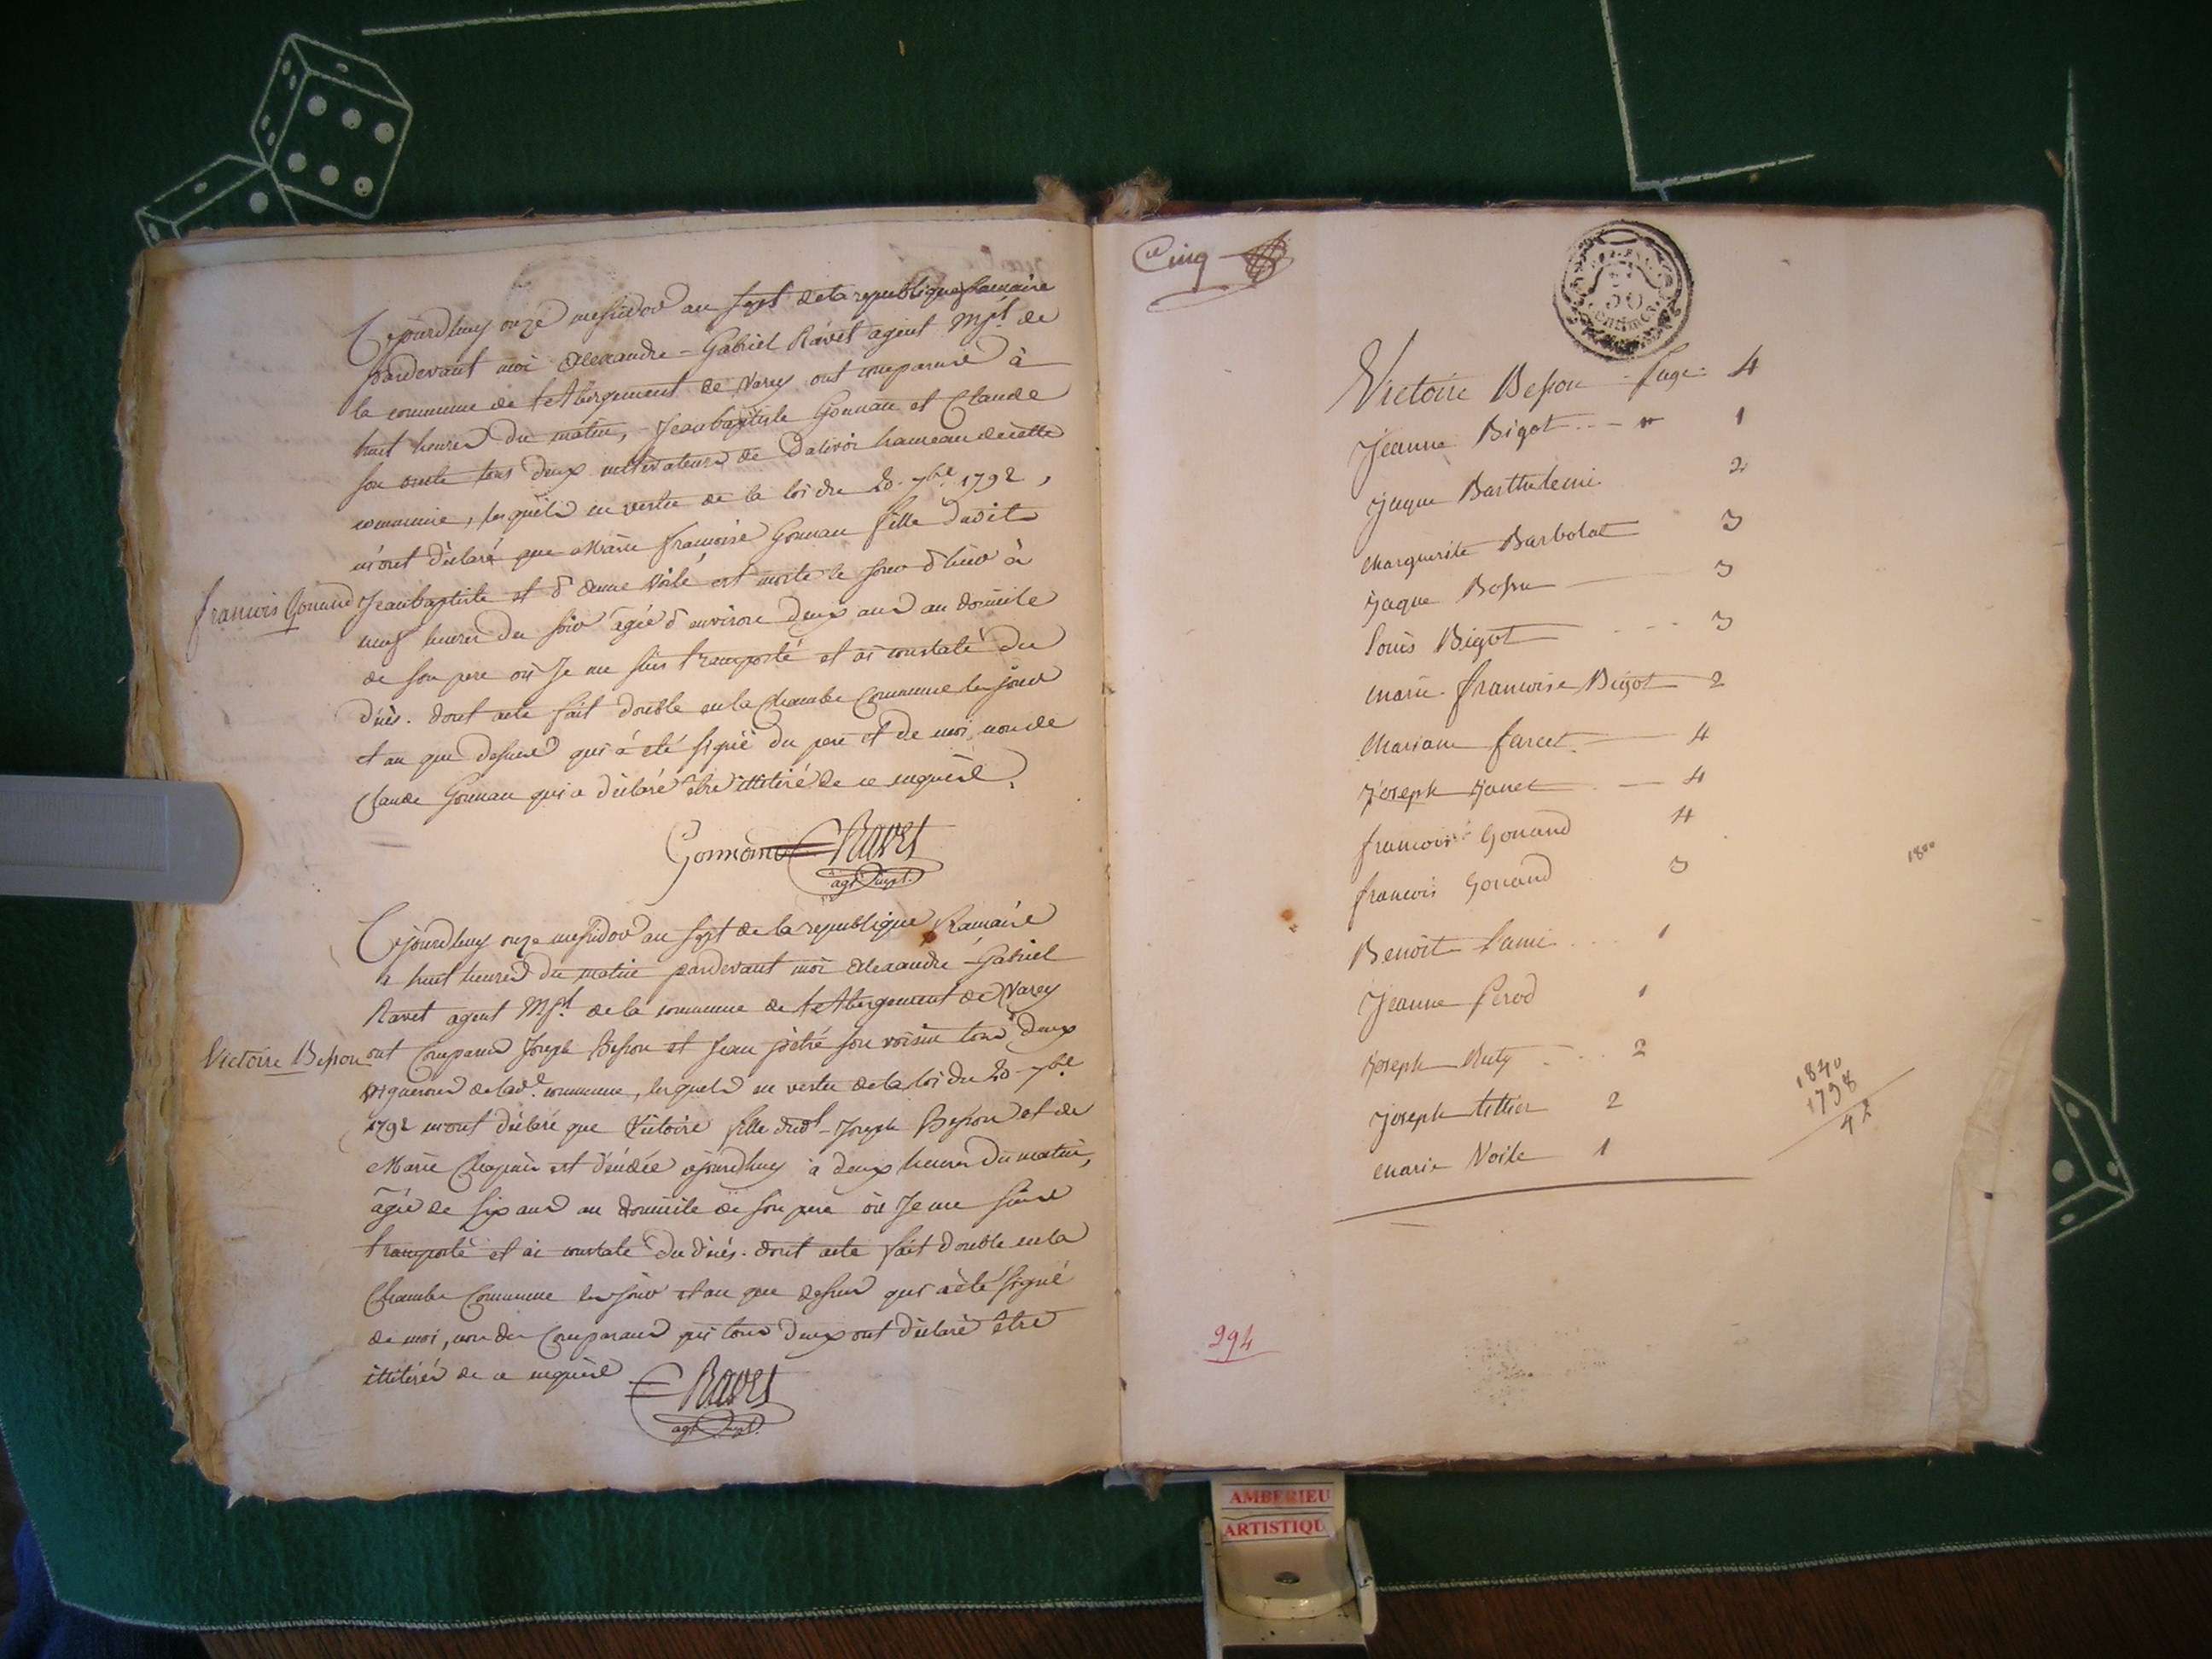 Cejourdhuy onze messidor an sept de la republique francaise
pardevant moi Alexandre-Gabriel Ravet agent Mpl de
la commune de l'Abergement de Varey ont comparus à
huit heures du matin, Jean baptiste Gonnan et Claude
son oncle tous deux cultivateurs de Dalivoi hameau de cette
commune, lesquels en vertu de la loi du 20 7bre 1792,
m'ont déclaré que Marie francoise Gonnan fille dudit
francois Gonand
Jean baptiste et d'Anne Voile est morte le jour d'hier à
neuf heures du soir agée d'environ deux ans au domicile
de son pere où Je me suis transporté et ai constaté du
décès. dont acte fait double en la Chambre Commune les jour
et an que dessus qui a été signé du pere et de moi, non de
Claude Gonnan qui a déclaré etre illitéré de ce enquis
Gonnand Ravet
agt mpl.
Cejourdhuy onze messidor an sept de la republique francaise
a huit heures du matin pardevant moi Alexandre-Gabriel
Ravet agent Mpl. de la commune de l'Abergement de Varey
Victoire Besson
ont Comparus Joseph Besson et Jean son voisin tous deux
vignerons de lade. commune, lesquels en vertu de la loi du 20 7bre
1792 m'ont déclaré que Victoire fille dudt Joseph Besson et de
Marie est décédée cejourdhuy à deux heures du matin,
agée de six ans au domicile de son pere où Je me suis
transporté et ai constaté du décès. dont acte fait double en la
Chambre Commune les jour et an que dessus qui a été signé
de moi, non des Comparans qui tous deux ont déclaré etre
illitérés de ce enquis
Ravet
agt mpl.
Cinq
50
centimes
Victoire Besson page 4
Jeanne Bigot 1
Jaque Barthelemi 2
Marguerite Barbolat 3
Jaque Bossu 3
Louis Bigot 3
Marie francoise Bigot 2
Mariane farcet 4
Joseph Janet 4
francoise Gonand 4
francois Gonand 3
1800
Benoit Lami 1
Jeanne Perod 1
Joseph Ruty 2
Joseph tillier 2
Marie Voile 1
1840
1798
42
294
AMBERIEU
ARTISTIQU